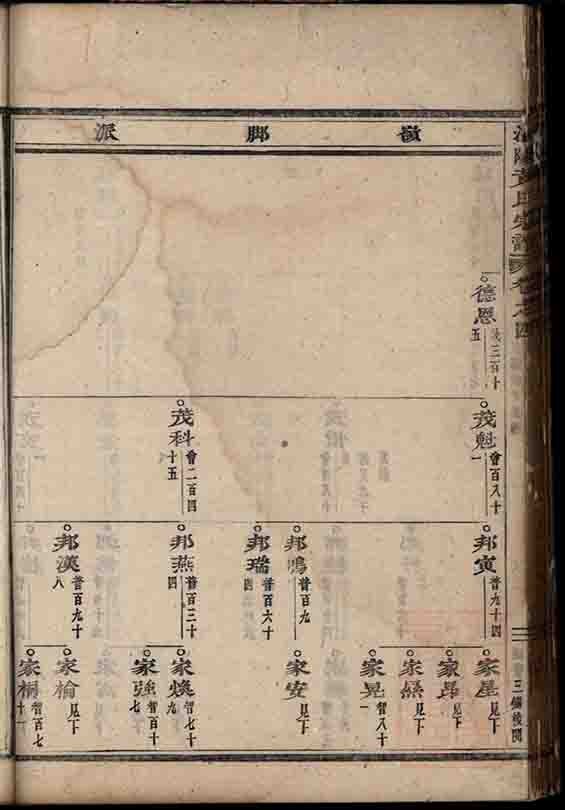 嶺腳派
黃氏宗譜
卷之四
德恩
三百十五
茂魁
會百八十一
茂科
會二百四十五
邦寅
普九十四
邦鴻
普百九十
邦瑞
普百六十四
邦燕
普百三十四
邦漢
普百九十八
家星
見下
家昂
見下
家
見下
家晃
智八十一
家安
見下
家煥
智七十九
家強
智百十七
家楡
見下
家桐
智百七十一